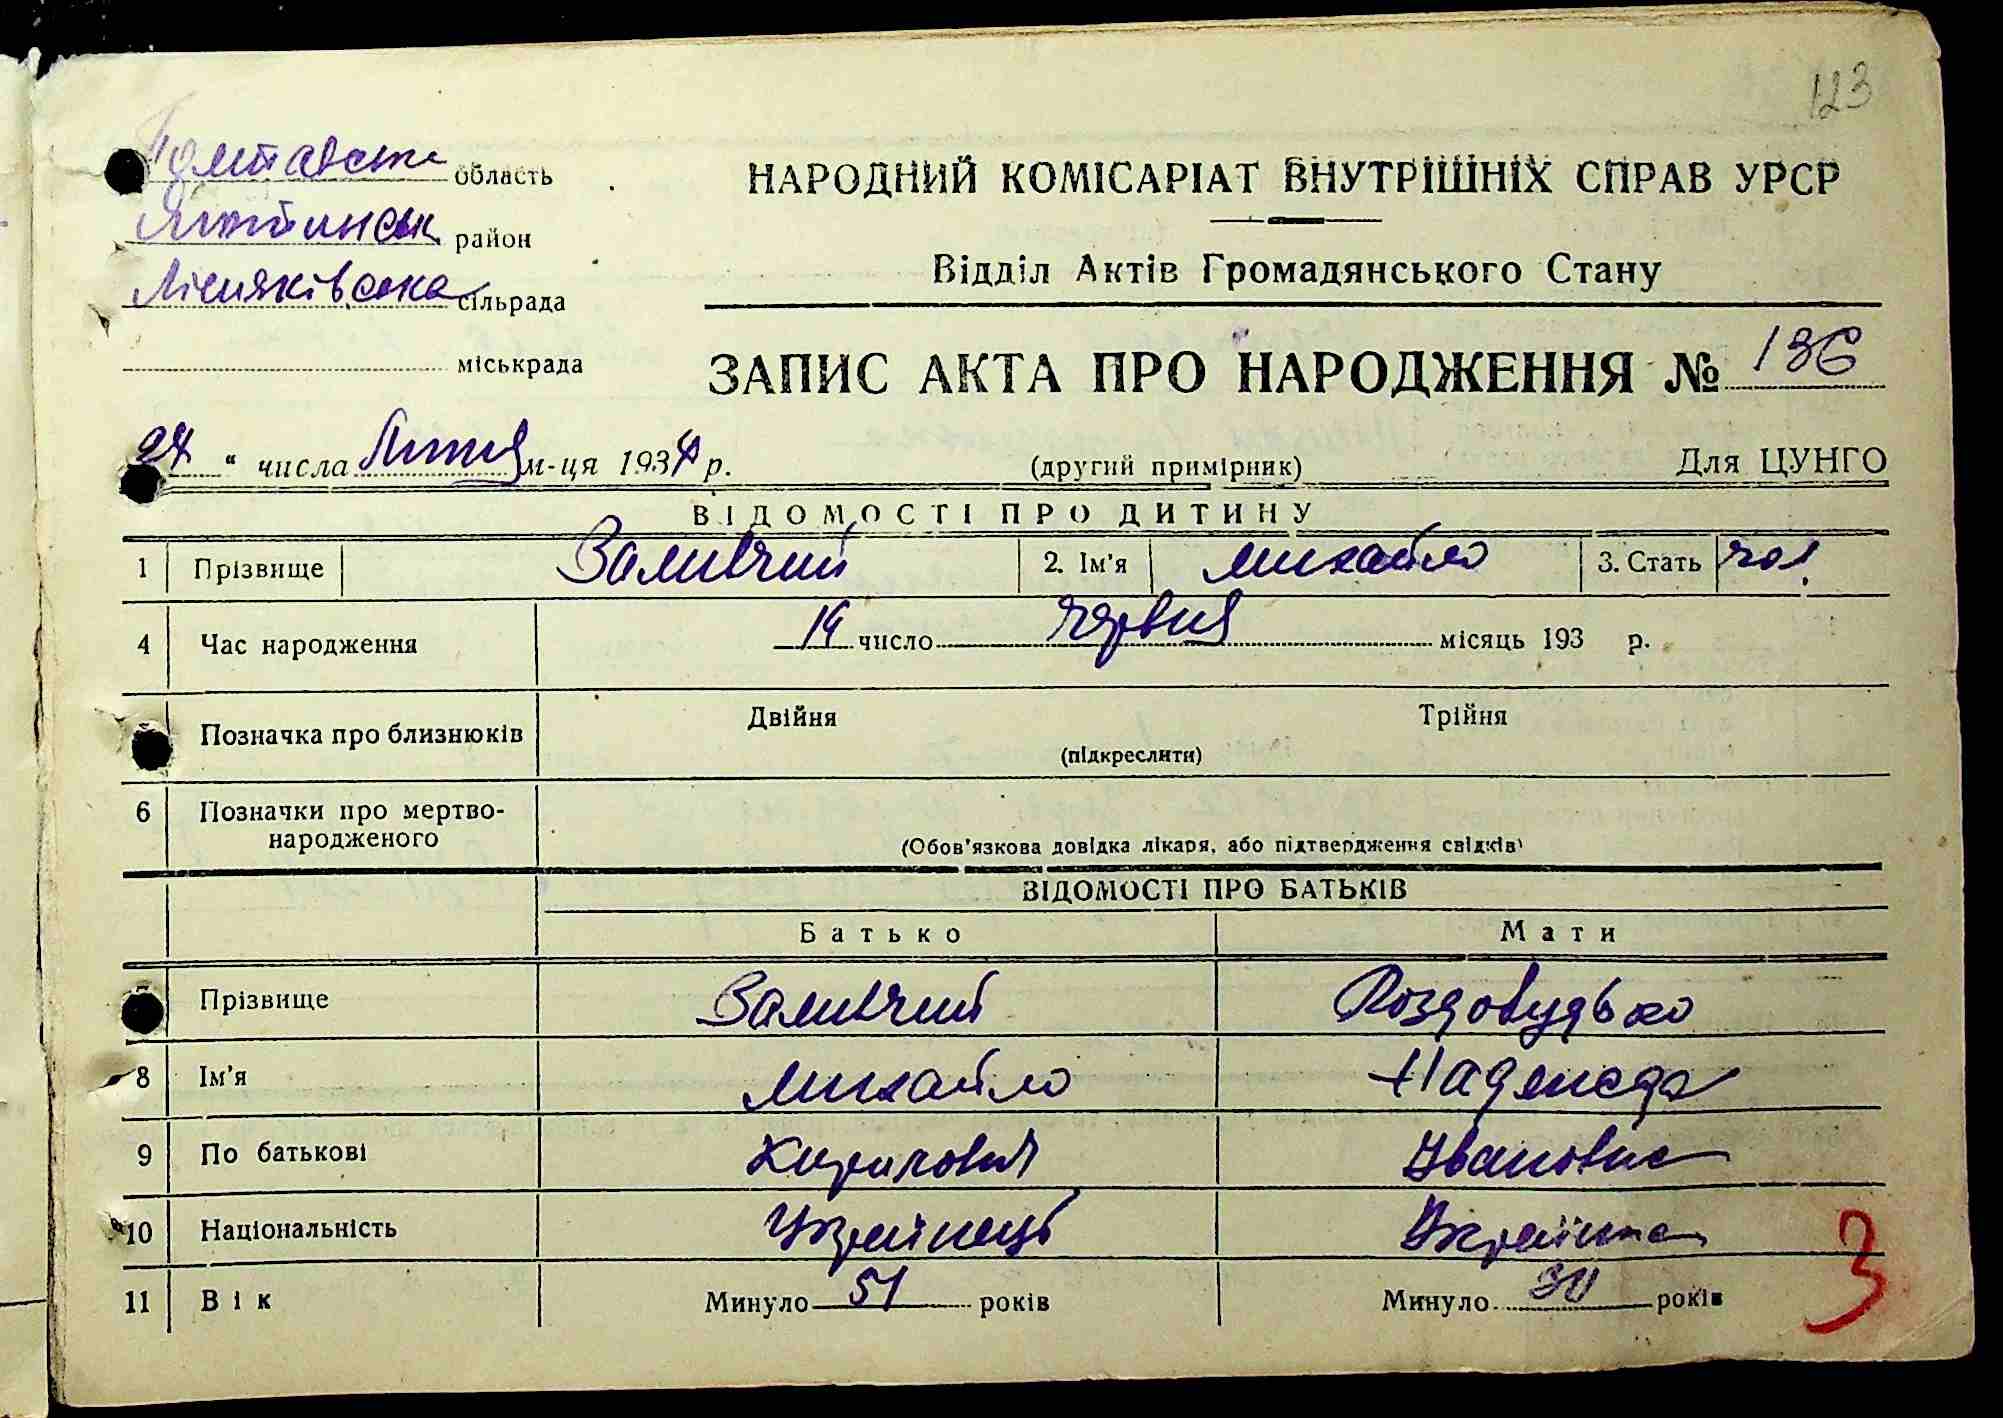 123
Полтавська область
НАРОДНИЙ КОМІСАРІАТ ВНУТРІШНІХ СПРАВ УРСР
Яготинськ район
Відділ Актів Громадянського Стану
Лісняківська сільрада
міськрада
ЗАПИС АКТА ПРО НАРОДЖЕННЯ № 136
" числа Липня м-ця 193 р.
(другий примірник)
Для ЦУНГО
ВІДОМОСТІ ПРО ДИТИНУ
1 Прізвище Заливчий 2. Ім'я Михайло 3. Стать чол.
4 Час народження 14 число червня місяць 193 р.
Позначка про близнюків Двійня Трійня
(підкреслити)
6 Позначки про мертво-
народженого
(Обов'язкова довідка лікаря, або підтвердження свідків)
ВІДОМОСТІ ПРО БАТЬКІВ
Батько Мати
Прізвище Заливчий Роздобудько
8 Ім'я Михайло Надежда
9 По батькові Кирилович Ивановна
10 Національність Українець Українка
11 Вік Минуло 51 років Минуло 30 років
3